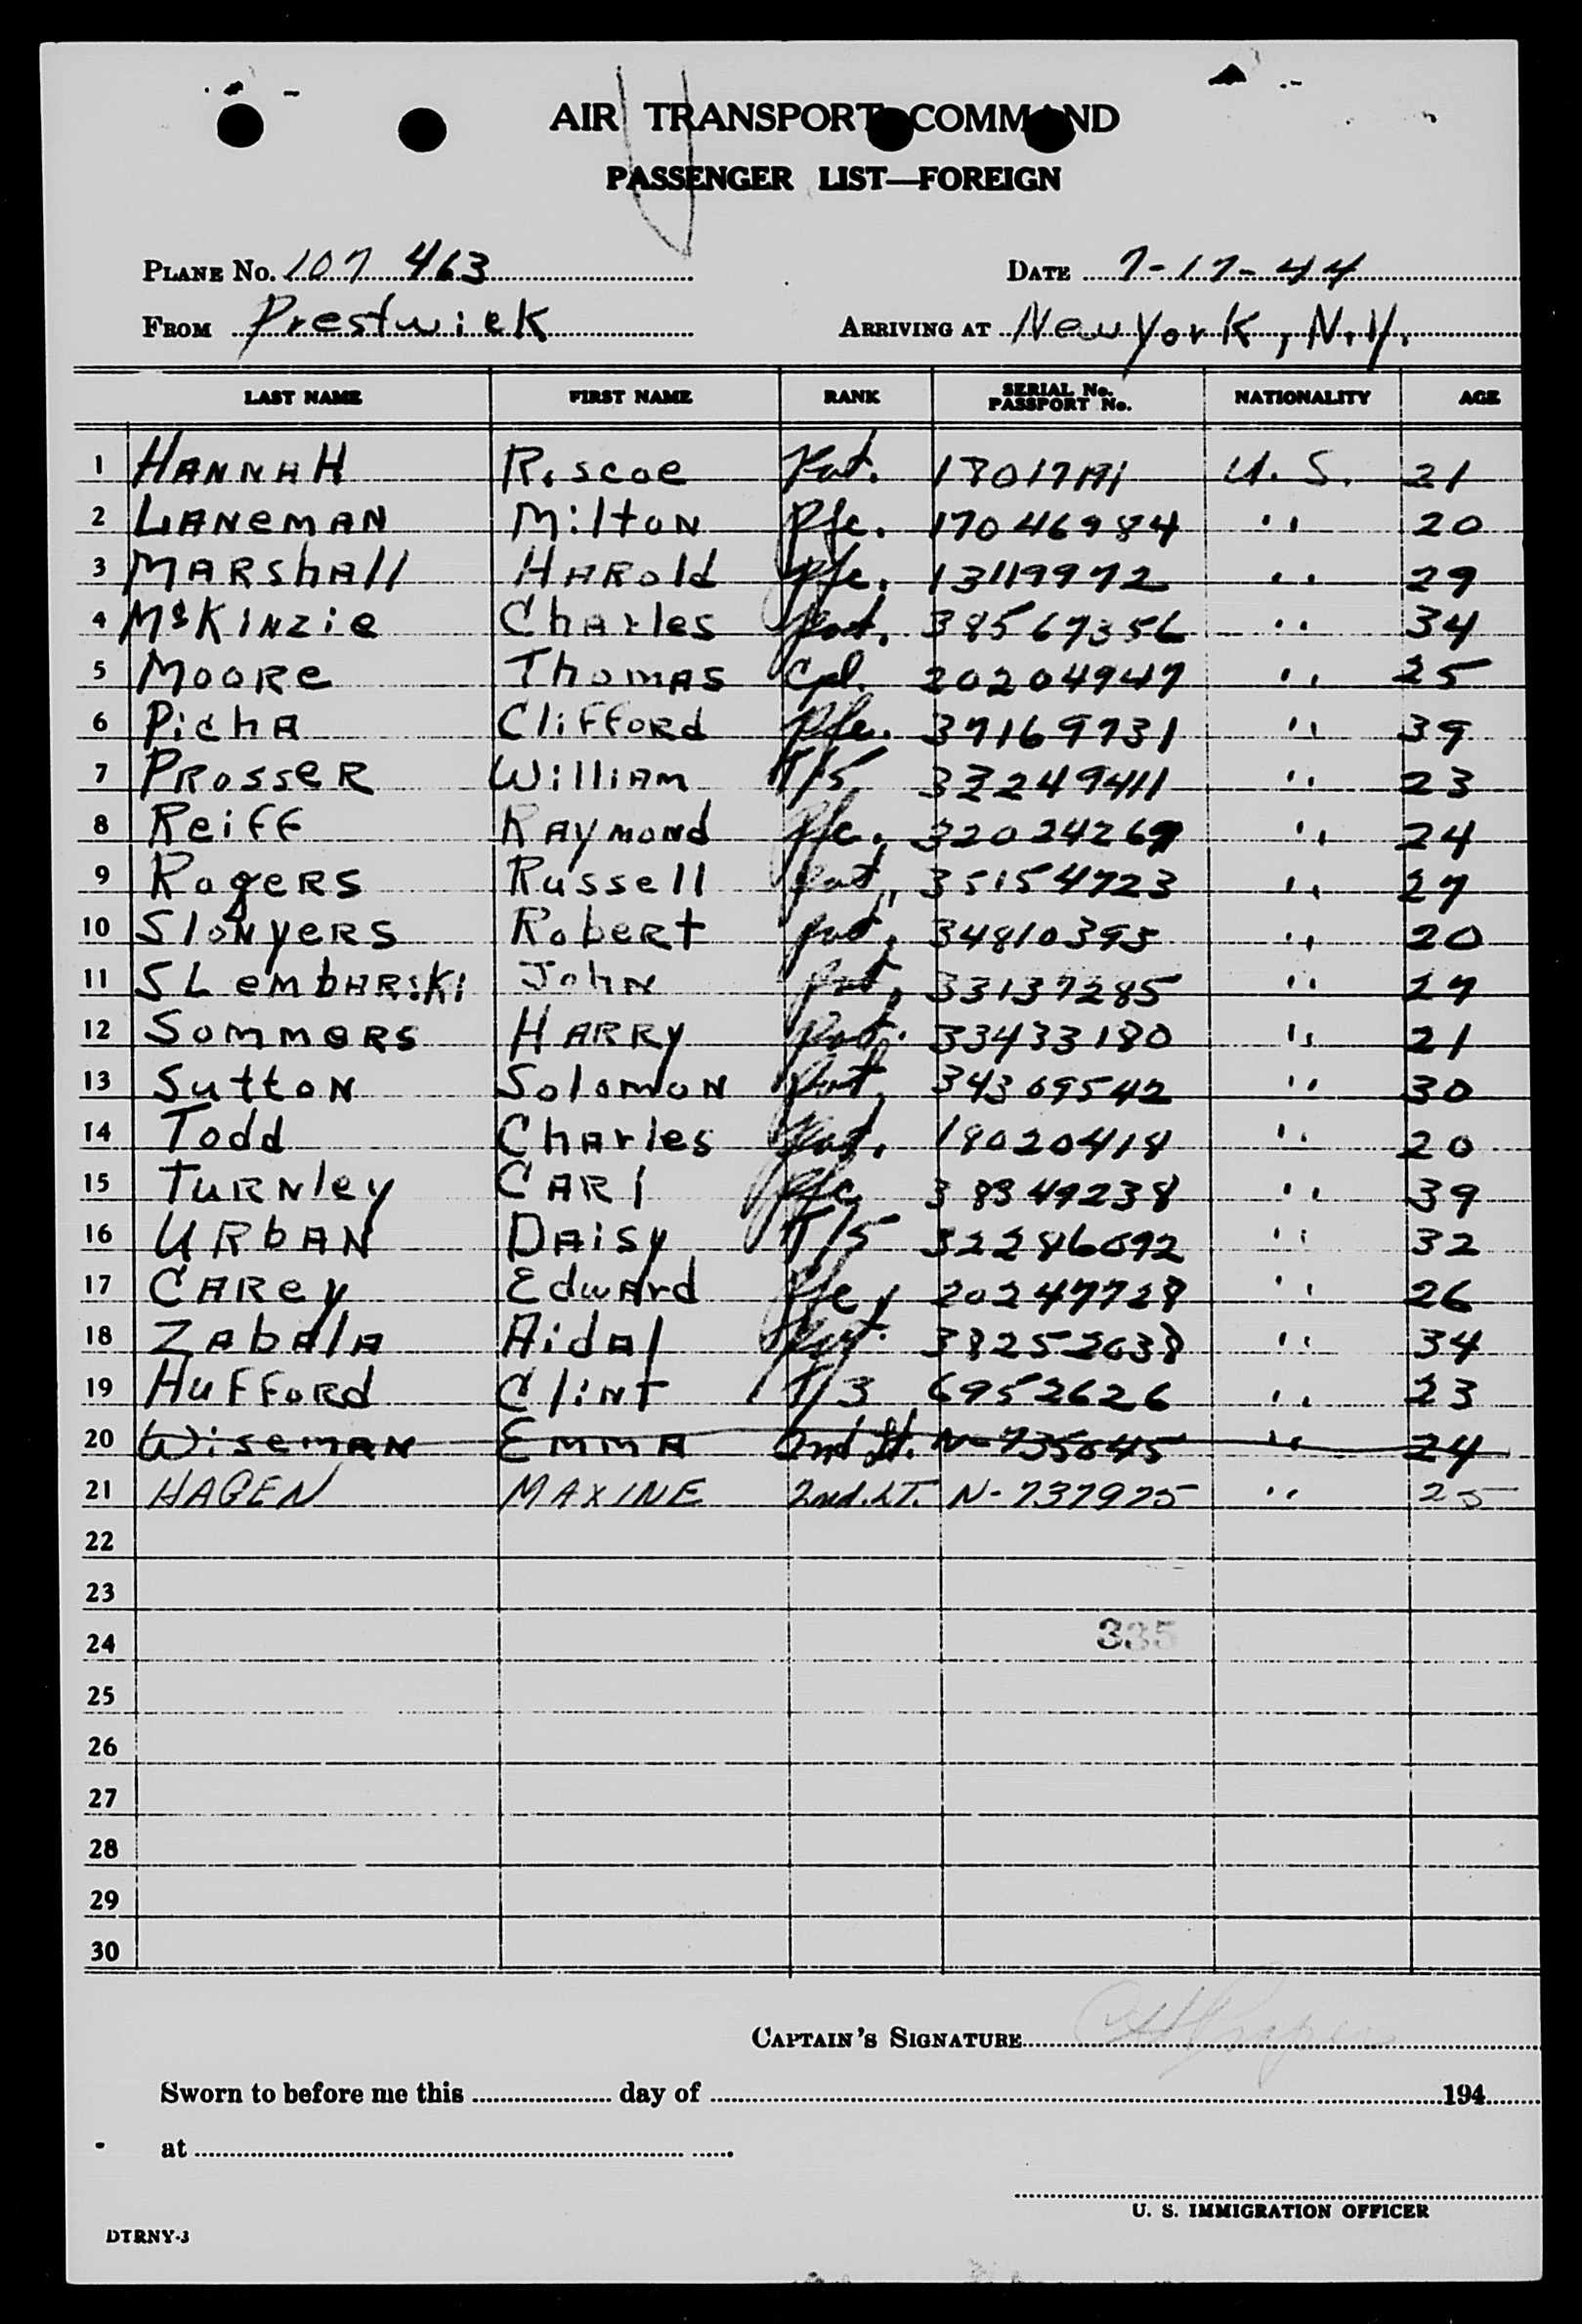 AIR TRANSPORT COMMAND
PASSENGER LIST—FOREIGN
PLANE No. 107 463 DATE 7-17-44
FROM Prestwick ARRIVING AT New York, N.Y.
LAST NAME FIRST NAME RANK SERIAL No. PASSPORT No. NATIONALITY AGE
1 HANNAH Roscoe Pvt. U.S. 21
2 LIANEMAN Milton Pfc. 17046984 " 20
3 MARShAll HARold Pfc. 13119972 " 29
4 McKINzie ChArles Pvt. 38567356 " 34
5 MooRe ThomAS Cpl. 20204947 " 25
6 PichA CliFFoRd Pfc. 37169731 " 39
7 PRosseR WilliAm T/5 33249411 " 23
8 Reiff RAymond Pfc. 32024269 " 24
9 RogeRS Russell Pvt. 35154723 " 27
10 SlonyeRS RobeRt Pvt. 34810395 " 20
11 SLembARski John Pvt. 33137285 " 27
12 SommeRS HARRy Pvt. 33433180 " 21
13 SuttoN SolomoN Pvt. 34309542 " 30
14 Todd ChArles Pvt. 18020418 " 20
15 TuRNley CARl Pfc 38349238 " 39
16 URbAN DAisy T/5 32286092 " 32
17 CARey EdwArd Pfc 20247728 " 26
18 ZAbAlA AidAl Pvt. 38252038 " 34
19 HuFFoRd CliNT T/3 6952626 " 23
20 WisemAN EmmA 2nd Lt. N-735045 " 24
21 HAGEN MAXINE 2nd.LT. N-737975 " 25
22
23
24 335
25
26
27
28
29
30
CAPTAIN'S SIGNATURE
Sworn to before me this day of 194
at
U. S. IMMIGRATION OFFICER
DTRNY-3